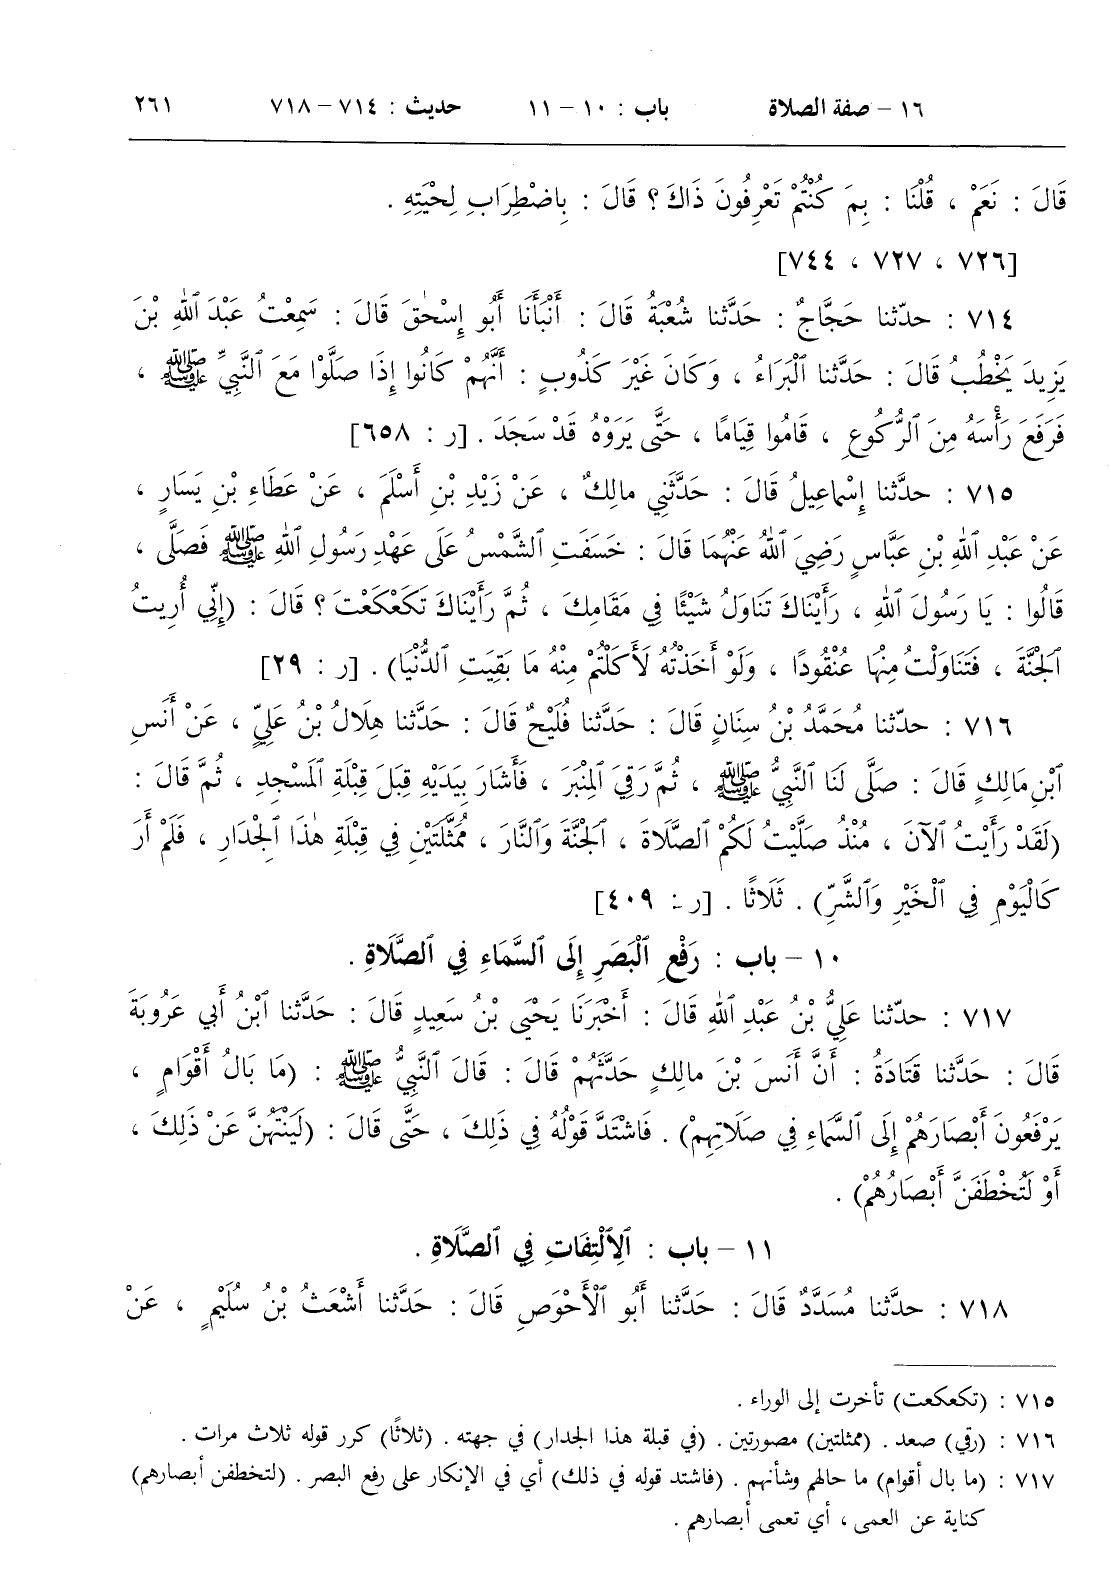 ١٦ – صفة الصلاة باب : ١٠ – ١١ حديث : ٧١٤ – ٧١٨ ٢٦١
قَالَ : نَعَمْ ، قُلْنَا : بِمَ كُنْتُمْ تَعْرِفُونَ ذَاكَ ؟ قَالَ : بِاضْطِرَابِ لِحْيَتِهِ .
[٧٢٦ ، ٧٢٧ ، ٧٤٤]
٧١٤ : حدّثنا حَجَّاجٌ : حَدَّثنا شُعْبَةُ قَالَ : أَنْبَأَنَا أَبُو إِسْحٰقَ قَالَ : سَمِعْتُ عَبْدَ ٱللهِ بْنَ
يَزِيدَ يَخْطُبُ قَالَ : حَدَّثنا ٱلْبَرَاءُ ، وَكَانَ غَيْرَ كَذُوبٍ : أَنَّهُمْ كَانُوا إِذَا صَلَّوْا مَعَ ٱلنَّبِيِّ ﷺ ،
فَرَفَعَ رَأْسَهُ مِنَ ٱلرُّكُوعِ ، قَامُوا قِيَامًا ، حَتَّى يَرَوْهُ قَدْ سَجَدَ . [ر : ٦٥٨]
٧١٥ : حدَّثنا إِسْمَاعِيلُ قَالَ : حَدَّثَنِي مالِكٌ ، عَنْ زَيْدِ بْنِ أَسْلَمَ ، عَنْ عَطَاءِ بْنِ يَسَارٍ ،
عَنْ عَبْدِ ٱللهِ بْنِ عَبَّاسٍ رَضِيَ ٱللهُ عَنْهُمَا قَالَ : خَسَفَتِ ٱلشَّمْسُ عَلَى عَهْدِ رَسُولِ ٱللهِ ﷺ فَصَلَّى ،
قَالُوا : يَا رَسُولَ ٱللهِ ، رَأَيْنَاكَ تَنَاوَلُ شَيْئًا فِي مَقَامِكَ ، ثُمَّ رَأَيْنَاكَ تَكَعْكَعْتَ ؟ قَالَ : (إِنِّي أُرِيتُ
ٱلْجَنَّةَ ، فَتَنَاوَلْتُ مِنْهَا عُنْقُودًا ، وَلَوْ أَخَذْتُهُ لَأَكَلْتُمْ مِنْهُ مَا بَقِيَتِ ٱلدُّنْيَا) . [ر : ٢٩]
٧١٦ : حدّثنا مُحَمَّدُ بْنُ سِنَانٍ قَالَ : حَدَّثنا فُلَيْحٌ قَالَ : حَدَّثنا هِلَالُ بْنُ عَلِيٍّ ، عَنْ أَنَسِ
ٱبْنِ مَالِكٍ قَالَ : صَلَّى لَنَا ٱلنَّبِيُّ ﷺ ، ثُمَّ رَقِيَ ٱلْمِنْبَرَ ، فَأَشَارَ بِيَدَيْهِ قِبَلَ قِبْلَةِ ٱلْمَسْجِدِ ، ثُمَّ قَالَ :
(لَقَدْ رَأَيْتُ ٱلْآنَ ، مُنْذُ صَلَّيْتُ لَكُمُ ٱلصَّلَاةَ ، ٱلْجَنَّةَ وَٱلنَّارَ ، مُمَثَّلَتَيْنِ فِي قِبْلَةِ هٰذَا ٱلْجِدَارِ ، فَلَمْ أَرَ
كَالْيَوْمِ فِي ٱلْخَيْرِ وَٱلشَّرِّ) . ثَلَاثًا . [ر : ٤٠٩]
١٠ – باب : رَفْعِ ٱلْبَصَرِ إِلَى ٱلسَّمَاءِ فِي ٱلصَّلَاةِ .
٧١٧ : حدّثنا عَلِيُّ بْنُ عَبْدِ ٱللهِ قَالَ : أَخْبَرَنَا يَحْيَى بْنُ سَعِيدٍ قَالَ : حَدَّثنا ٱبْنُ أَبِي عَرُوبَةَ
قَالَ : حَدَّثنا قَتَادَةُ : أَنَّ أَنَسَ بْنَ مالِكٍ حَدَّثَهُمْ قَالَ : قَالَ ٱلنَّبِيُّ ﷺ : (مَا بَالُ أَقْوَامٍ ،
يَرْفَعُونَ أَبْصَارَهُمْ إِلَى ٱلسَّمَاءِ فِي صَلَاتِهِمْ) . فَاشْتَدَّ قَوْلُهُ فِي ذَلِكَ ، حَتَّى قَالَ : (لَيَنْتَهُنَّ عَنْ ذَلِكَ ،
أَوْ لَتُخْطَفَنَّ أَبْصَارُهُمْ) .
١١ – باب : ٱلِٱلْتِفَاتِ فِي ٱلصَّلَاةِ .
٧١٨ : حدَّثنا مُسَدَّدٌ قَالَ : حَدَّثنا أَبُو ٱلْأَحْوَصِ قَالَ : حَدَّثنا أَشْعَثُ بْنُ سُلَيْمٍ ، عَنْ
٧١٥ : (تكعكعت) تأخرت إلى الوراء .
٧١٦ : (رقي) صعد . (ممثلتين) مصورتين . (في قبلة هذا الجدار) في جهته . (ثلاثًا) كرر قوله ثلاث مرات .
٧١٧ : (ما بال أقوام) ما حالهم وشأنهم . (فاشتد قوله في ذلك) أي في الإنكار على رفع البصر . (لتخطفن أبصارهم)
كناية عن العمى ، أي تعمى أبصارهم .